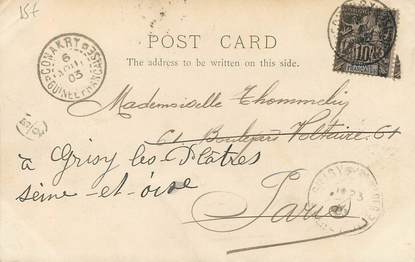 15f
POST CARD
The address to be written on this side.
CONAKRY
6
AOUT
03
GUINEE FRANCAISE
10
Mademoiselle Thommelin
61 Boulevard Voltaire 61
à Grisy les Plâtres
Seine-et-Oise
Paris
GRISY
23